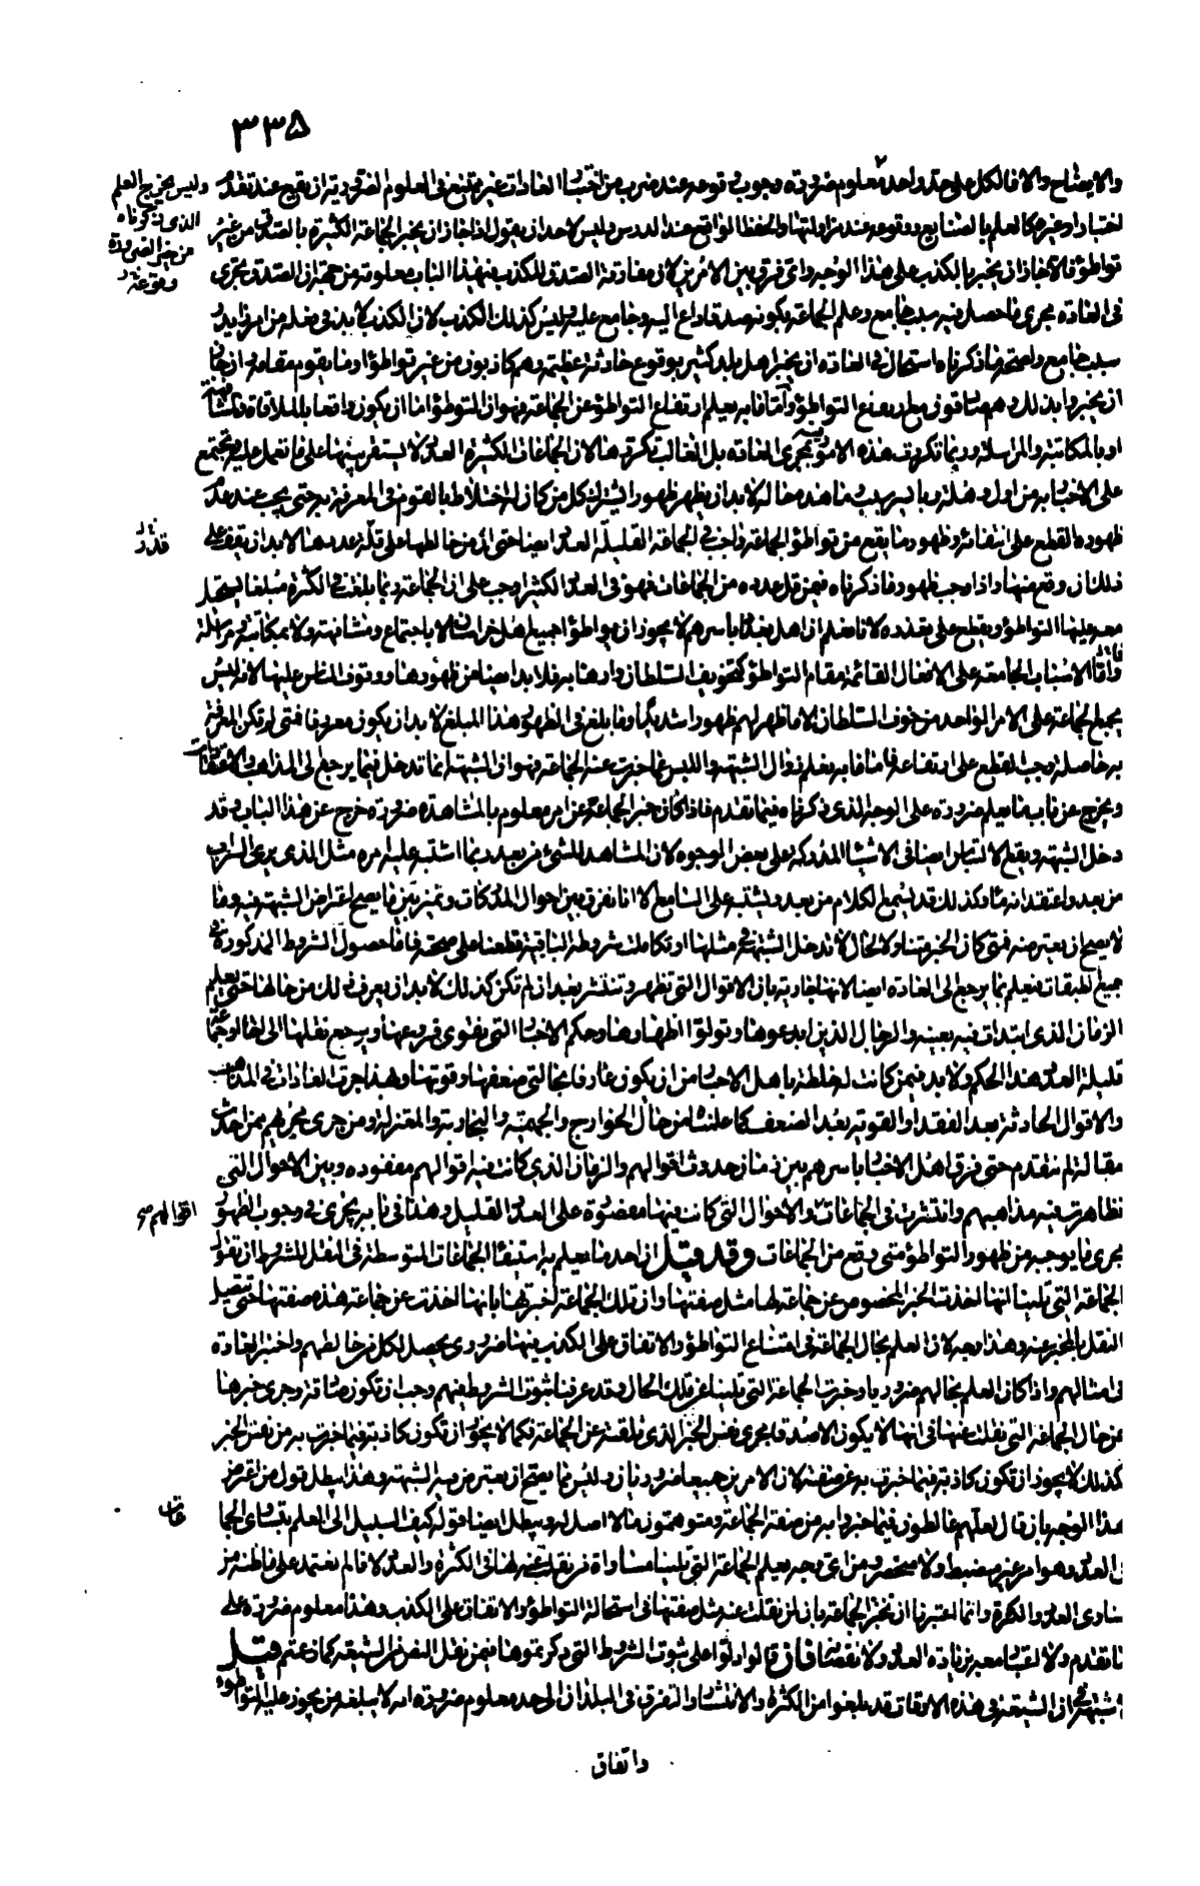 ٣٣٥
والايضاح والا فالكل على حد واحد معلوم ضرورة وجوب وقوعه عند ضرب من اختبار العادات غير ممتنع في العلوم الضرورية ان يقع عند تقدم
وليس يخرج العلم
الذي ذكرناه
من حيز الضرورة
وقوعه
اختبار او غيره كالعلم بالصنايع ووقوعه عند مزاولتها والحفظ الواقع عند الدرس وليس لاحد ان يقول اذا جاز ان يخبر الجماعة الكثيرة بالصدق من غير
تواطؤ فالا جاز ان يخبر بالكذب على هذا الوجه واي فرق بين الامرين لان مفارقة الصدق للكذب في هذا الباب معلومة من جهة ان الصدق يجري
في العادة مجرى ما حصل فيه سبب جامع وعلم الجماعة بكونه صدقا داع اليه وجامع عليه وليس كذلك الكذب لان الكذب لا بد في فعله من امر زايد
سبب جامع ولصحة ما ذكرناه استحال في العادة ان يخبر اهل بلد كثير بوقوع حادثة عظيمة وهم كاذبون من غير تواطؤ او ما يقوم مقامه وان جاز
ان يخبروا بذلك وهم صادقون مع ارتفاع التواطؤ واما ما به يعلم ارتفاع التواطؤ عن الجماعة فهو ان التواطؤ اما ان يكون واقعا بالملاقاة والمشافهة
او بالمكاتبة والمراسلة وربما تكررت هذه الامور بمجرى العادة بل الغالب تكررها لان الجماعات الكثيرة العدد لا يستقر بينها على ما تعمل عليه وتجتمع
على الاخبار به من اول وهلة وما هذه حاله لا بد ان يظهر ظهورا يشترك كل من كان له اختلاط بالقوم في المعرفة به حتى يجب عند عدم
ظهوره القطع على انتفائه وظهور ما يقع من تواطؤ الجماعة واجب في الجماعة القليلة العدد ايضا حتى ان من خالطها على قلة عددها لا بد ان يقف على
ذلك ان وقع منها واذا وجب ظهور ما ذكرناه فيمن قل عدده من الجماعات فهو في العدد الكثير اوجب على ان الجماعة ربما بلغت في الكثرة مبلغا يستحيل
معه عليها التواطؤ ويقطع على تعذره لانا نعلم ان اهل بغداد باسرهم لا يجوز ان يواطؤا جميع اهل خراسان لا باجتماع ومشافهة ولا بمكاتبة ومراسلة
واما الاسباب الجامعة على الافعال القائمة مقام التواطؤ كتخويف السلطان وارهابه فلا بد ايضا من ظهورها ووقوف الناس عليها لانه ليس
يجمع الجماعة على الامر الواحد من خوف السلطان الا ما ظهر لهم ظهورا شديدا وما بلغ في الظهور هذا المبلغ لا بد ان يكون معروفا فمتى لم تكن المعرفة
به حاصلة وجب القطع على ارتفاعه فاما ما به يعلم زوال الشبهة واللبس عما خبرت عنه الجماعة فهو ان الشبهة انما تدخل فيما يرجع الى المذاهب والاعتقادات
ويخرج عن باب ما يعلم ضرورة على الوجه الذي ذكرناه فيما تقدم فاذا كان خبر الجماعة عن امر معلوم بالمشاهدة ضرورة خرج عن هذا الباب وقد
دخل الشبهة ويقع الالتباس ايضا في الاشياء المدركة على بعض الوجوه لان المشاهد للشيء من بعيد ربما اشتبه عليه امره مثل الذي يرى السراب
من بعد واعتقد انه ماء وكذلك قد يسمع الكلام من بعد ويشتبه على السامع الا انا نفرق بين احوال المدركات ونميز بين ما يصح اعتراض الشبهة فيه وما
لا يصح ان يعترضه فمتى كان الخبر متناولا لحال لا تدخل الشبهة في مثلها او تكاملت شروطه الباقية قطعنا على صحته فاما حصول الشروط المذكورة في
جميع الطبقات فيعلم بما يرجع الى العادة ايضا لانها جارية بان الاقوال التي تظهر وتنتشر بعد ان لم تكن كذلك لا بد ان يعرف ذلك من حالها حتى يعلم
الزمان الذي ابتدات فيه بعينه والرجال الذين ابدعوها وتولوا اظهارها وحكم الاخبار التي يقوى فروعها ويرجع نقلها الى آحاد او جماعة
قليلة العدد هذا الحكم ولا بد فيمن كانت له خلطة باهل الاخبار من ان يكون عارفا بحالتي ضعفها وقوتها وبهذا جرت العادات في المذاهب
والاقوال الحادثة بعد الفقد او القوية بعد الضعف كما علمناه من حال الخوارج والجهمية والنجارية والمعتزلة ومن جرى مجراهم ممن حدث
مقالته لم يتقدم حتى فرق اهل الاخبار باسرهم بين زمان حدوث اقوالهم والزمان الذي كانت فيه اقوالهم مفقودة وبين الاحوال التي
تظاهرت فيه مذاهبهم وانتشرت في الجماعات والاحوال التي كانت فيها مقصورة على العدد القليل وهذا في بابه يجري في وجوب الظهور
اقوالهم
مجرى ما يوجب من ظهور التواطؤ متى وقع من الجماعات وقد قيل ان احد ما يعلم به استيفاء الجماعات المتوسطة في النقل للشروط ان تقول
الجماعة التي تلينا انها اخذت الخبر المخصوص عن جماعة لها مثل صفتها وان تلك الجماعة اخبرتها بانها اخذت عن جماعة هذه صفتها حتى يتصل
النقل بالمخبر عنه وهذا وجه لان العلم بحال الجماعة في امتناع التواطؤ والاتفاق على الكذب فيها ضروري يحصل لكل من خالطهم واختبر العادة
في امثالهم واذا كان العلم بحالهم ضروريا وخبرت الجماعة التي تلينا عن تلك الحال وقد عرفنا ثبوت الشروط فيهم وجب ان تكون صادقة وجرى خبرها
عن حال الجماعة التي نقلت عنها في انها لا يكون الا صدقا مجرى نفس الخبر الذي تلقته عن الجماعة فكما لا يجوز ان تكون كاذبة فيما اخبرت به من نفس الخبر
كذلك لا يجوز ان تكون كاذبة فيما اخبرت به عن صفته لان الامرين جميعا ضروريان وليس مما يصح ان يعترض فيه الشبهة وهذا يبطل قول من اعترض
هذا الوجه بان قال لعلهم غالطون فيما خبروا به من صفة الجماعة ومتوهمون ما لا اصل له ويبطل ايضا قوله كيف السبيل الى العلم بتساوي الجما
عات
في العدد وهو امر غير منضبط ولا منحصر ومن اي وجه يعلم الجماعة التي تلينا مساواة من نقلت عنه لها في الكثرة والعدد لانا لم نعتمد على ما ظنه من
تساوي العدد والكثرة وانما اعتبرنا ان تخبر الجماعة بان من نقلت عنه مثل صفتها في استحالة التواطؤ والاتفاق على الكذب وهذا معلوم ضرورة على
ما تقدم ولا اعتبار معه بزيادة العدد ولا نقصانه فان قالوا دلوا على ثبوت الشروط التي ذكرتموها فيمن نقل النص من الشيعة كما زعمتم قيل
لا شبهة في ان الشيعة في هذه الاوقات قد بلغوا من الكثرة والانتشار والتفرق في البلدان الى حد معلوم ضرورة انه لا يبلغه من يجوز عليه التواطؤ
واتفاق